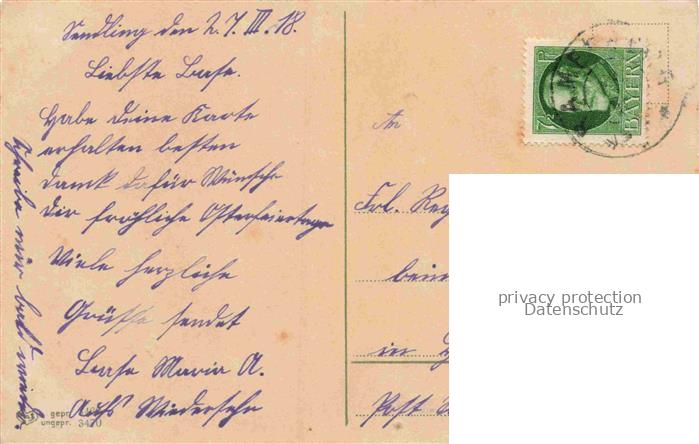 Sendling den 27. III. 18.
Liebste Base.
Habe deine Karte
erhalten besten
dank dafür Wünsche
dir fröhliche Osterfeiertage
Viele herzliche
Grüsse sendet
Base Maria A.
Aufs Wiedersehn
Schreibe mir bald wieder.
gepr.
ungepr. 3420
BAYERN
An
Frl. Reg
beim
in
Post
privacy protection
Datenschutz